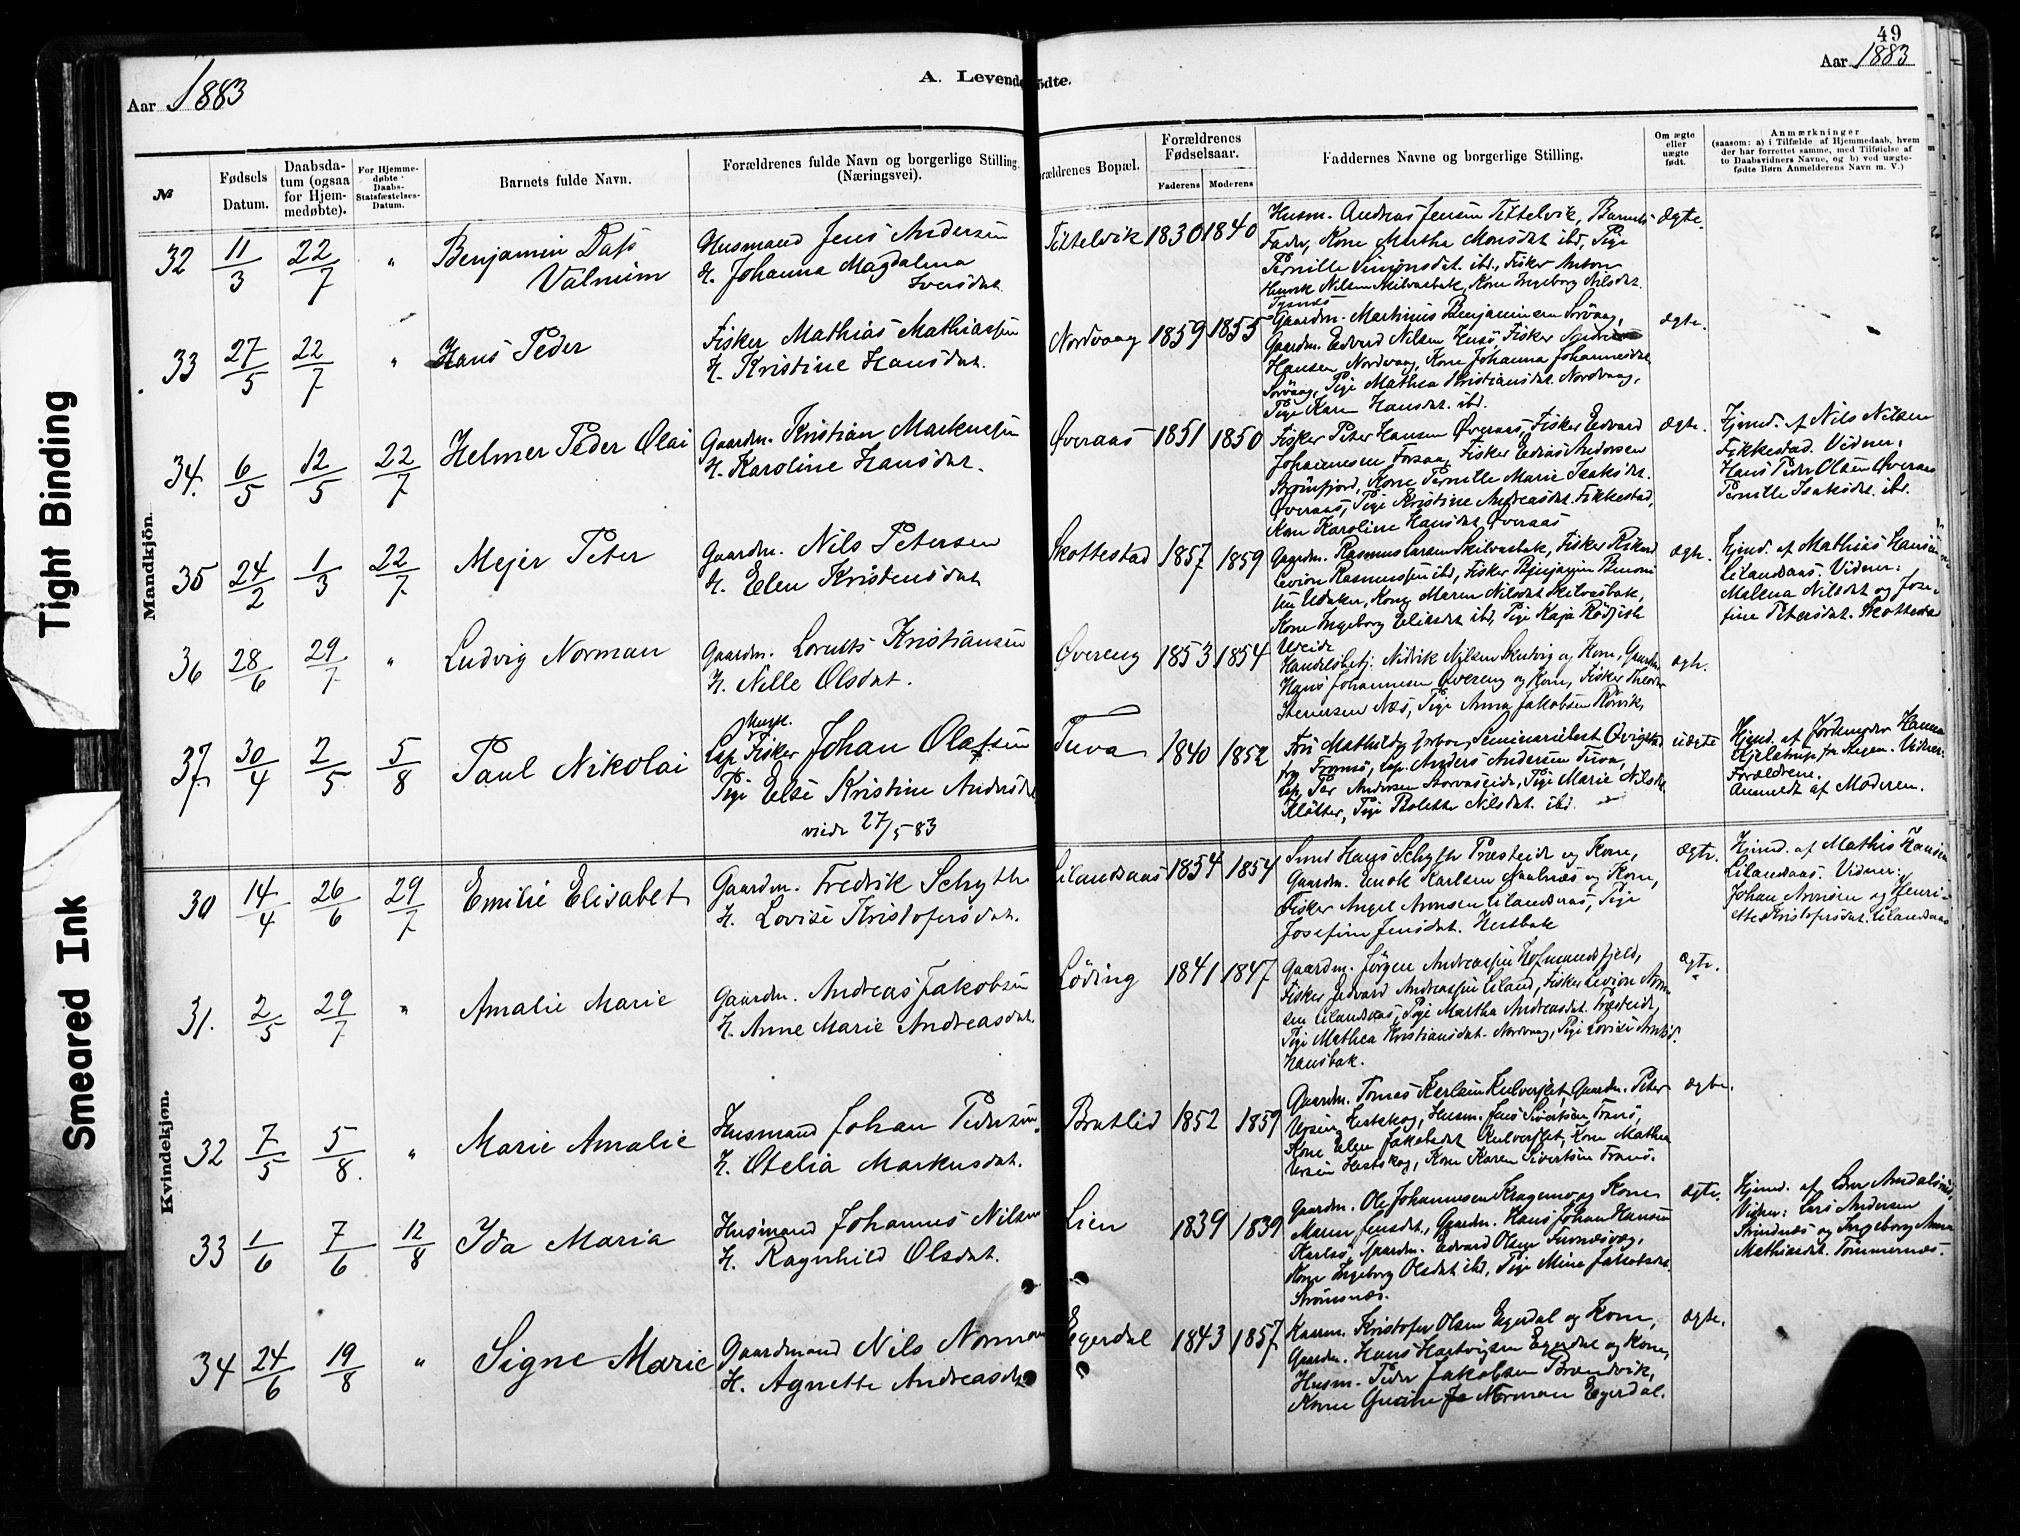 49
Aar 1883
A. Levendefødte.
Aar 1883
Tight Binding
Smeared Ink
№
Fødsels Datum.
Daabsdatum (ogsaa for Hjemmedøbte).
For Hjemmedøbte Daabs-Stadfæstelses-Datum.
Barnets fulde Navn.
Forældrenes fulde Navn og borgerlige Stilling (Næringsvei).
Forældrenes Bopæl.
Forældrenes Fødselsaar.
Faderens
Moderens
Faddernes Navne og borgerlige Stilling.
Om ægte eller uægte født.
Anmærkninger
(saasom: a) i Tilfælde af Hjemmedaab, hvem der har forrettet samme, med Tilføielse af to Daabsvidners Navne, og b) ved uægtefødte Børn Anmelderens Navn m. V.)
Mandkjön.
32 11/3 22/7 " Benjamin Dass Valnum
Husmand Jens Andersen
H. Johanna Magdalena Iversdat.
Tittelvik 1830 1840
Husm. Andreas Jensen Tittelvik, Barnets
Fader, Kone Martha Monsdat. ibd., Pige
Pernille Simonsdat. ibd., Fisker Anton
Henrik Nilsen Skilvasbak, Kone Ingeborg Nilsdat.
ægte.
33 27/5 22/7 " Hans Peder
Fisker Mathias Mathiassen
H. Kristine Hansdat.
Nordvaag 1859 1855
Gaardm. Martinus Benjaminsen Sörvaag,
Gaardm. Edvard Nilsen Husö, Fisker
Hansen Nordvaag, Kone Johanna Johannesdat.
Sörvaag, Pige Mathea Kristiansdat. Nordvaag,
Pige Karen Hansdat. ibd.
ægte.
34. 6/5 12/5 22/7 Helmer Peder Olai
Gaardm. Kristian Markussen
H. Karoline Hansdat.
Øveraas 1851 1850
Fisker Peter Hansen Øveraas, Fisker Edvard
Johannesen Forsaa, Fisker Edias Andersen
Kone Pernille Marie Isaksdat.
Øveraas, Pige Kristine Andreasdat. Fikkestad,
Kone Karoline Hansdat. Øveraas
ægte.
Hjmd. af Nils Nilsen
Fikkestad. Vidner:
Hans Peder Olsen Øveraas
Pernille Isaksdt. ibd.
35 24/2 1/3 22/7 Mejer Peter
Gaardm. Nils Petersen
H. Elen Kristensdat
Skottestad 1857 1859
Gaardm. Rasmus Larsen Skilvasbak, Fisker Rikard
Levion Rasmussen ibd, Fisker Benjamin
Kone Maren Nilsdat Skilvasbak,
Kone Ingeborg Eliasdat ibd, Pige Kaja
ægte.
Hjmd. af Mathias Hansen
Lilandsaas. Vidner:
Malena Nilsdt og Jose-
fine Petersdat. Skottestad
36 28/6 29/7 " Ludvig Norman
Gaardm. Lorents Kristiansen
H. Nille Olsdat.
Øvereng 1853 1854
Handelsbetj. Nilsen og Kone, Gaardm.
Hans Johannesen Øvereng og Kone, Fisker
Næs, Pige Anna Jakobsen Rörvik.
ægte.
37. 30/4 2/5 5/8 Paul Nikolai
Lap Fisker Johan Olafsen
Pige Else Kristine Andersdat
viede 27/5 83
Tuva 1840 1852
Fru Mathilde
fra Tromsö, Lap. Anders Andersen Tuva,
Lap Per Andersen Pige Marie Nilsdt.
Pige Bolette Nilsdat. ibd.
uægte
Hjmd. af Jordmoder Hanna
Hjelstrup fra Vidner:
Forældrene.
Anmeldt af Moderen.
Kvindekjøn.
30 14/4 26/6 29/7 Emilie Elisabet
Gaardm. Fredrik Schytte
H. Lovise Kristofersdat.
Lilandsaas 1854 1854
Smed Hans Schytte Præsteide og Kone,
Gaardm. Enok Karlsen Saalnæs og Kone,
Fisker Angel Aronsen Lilandsaas, Pige
Josefine Jensdat. Hestbak
ægte.
Hjmd. af Mathis Hansen
Lilandsaas. Vidner:
Johan Aronsen og Henri-
ette Kristofersdat. Lilandsaas
31. 2/5 29/7 " Amalie Marie
Gaardm. Andreas Jakobsen
H. Anne Marie Andreasdat.
Løding 1841 1847
Gaardm. Jørgen Andreassen Hofmandsfjeld,
Fisker Edvard Andreassen Liland, Fisker Levion Aron-
sen Lilandsaas, Pige Martha Andreasdat. Præsteide,
Pige Mathea Kristiansdat. Nordvaag, Pige Lovise
Hansbak.
ægte.
32 7/5 5/8. " Marie Amalie
Husmand Johan Pedersen
H. Otelia Markusdat.
Bratlid 1852 1859
Gaardm. Tomas Karlsen Kulverslet, Gaardm. Peter
Ursin Hestskog, Husm. Jens Sivertsen Tranö,
Kone Elen Jakobsdat Kulverslet, Kone Mathea
Ursin Hestskog, Kone Karen Sivertsen Tranö.
ægte.
33 1/6 7/6 12/8 Ida Maria
Husmand Johannes Nilsen
H. Ragnhild Olsdat.
Lien 1839 1839
Gaardm. Ole Johannesen Kragemo og Kone
Maren Jensdat, Gaardm. Hans Johan Hansen
Karlsö, Gaardm. Edvard Olsen
Kone Ingeborg Olsdat ibd, Pige Mina Jakobsdt.
Strömsnæs.
ægte.
Hjmd. af
Vidner: Lars Andersen
Strindnæs og Ingeborg Anna
Mathiasdat. Tömmernæs.
34 24/6 19/8 " Signe Marie
Gaardmand Nils Norman
H. Agnette Andreasdat
Egerdal 1843 1857
Kaarm. Kristofer Olsen Egerdal og Kone,
Gaardm. Hans Hartvigsen Egerdal og Kone,
Husm. Peder Jakobsen Brændvik,
Kone Norman Egerdal.
ægte.